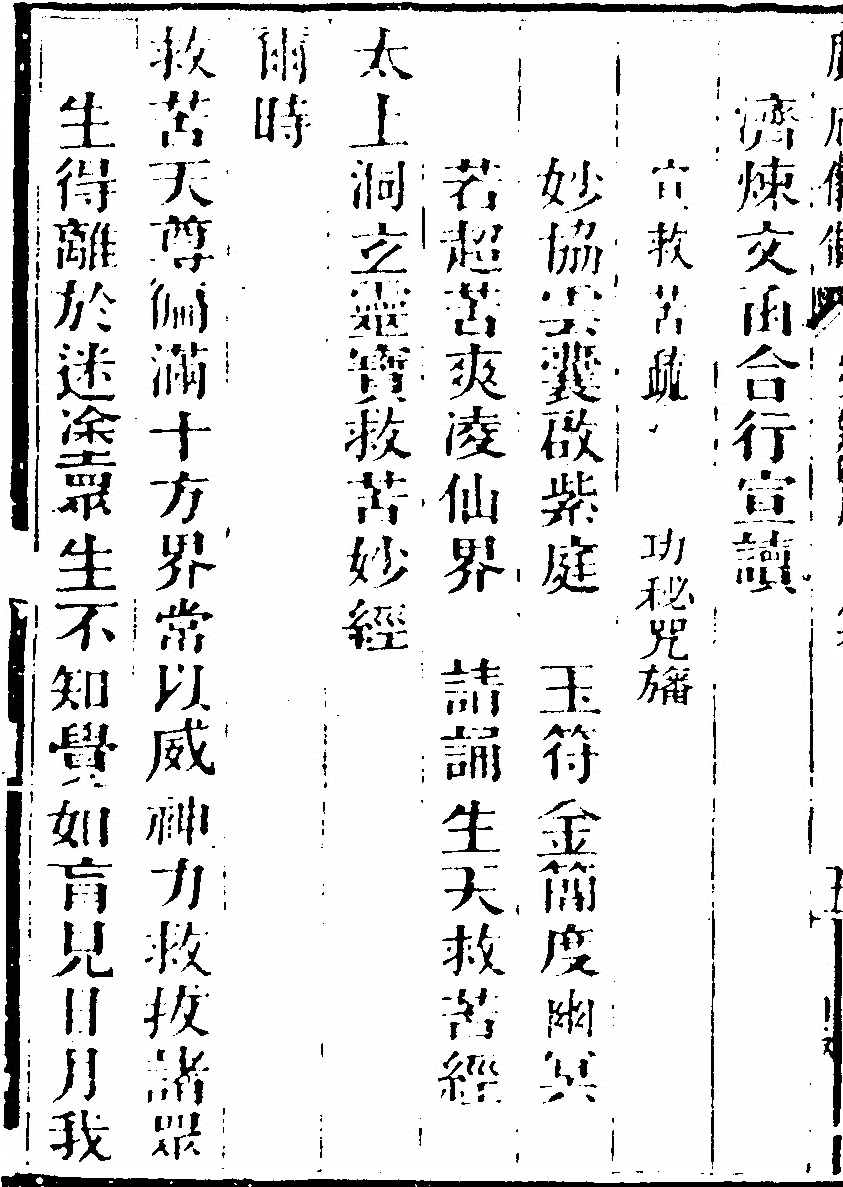 濟煉文函合行宣讀
宣救苦疏 功秘咒旛
妙協雲囊啟紫庭 玉符金簡度幽冥
若超苦爽凌仙界 請誦生天救苦經
太上洞玄靈寶救苦妙經
爾時
救苦天尊徧滿十方界常以威神力救拔諸眾
生得離於迷塗眾生不知覺如盲見日月我